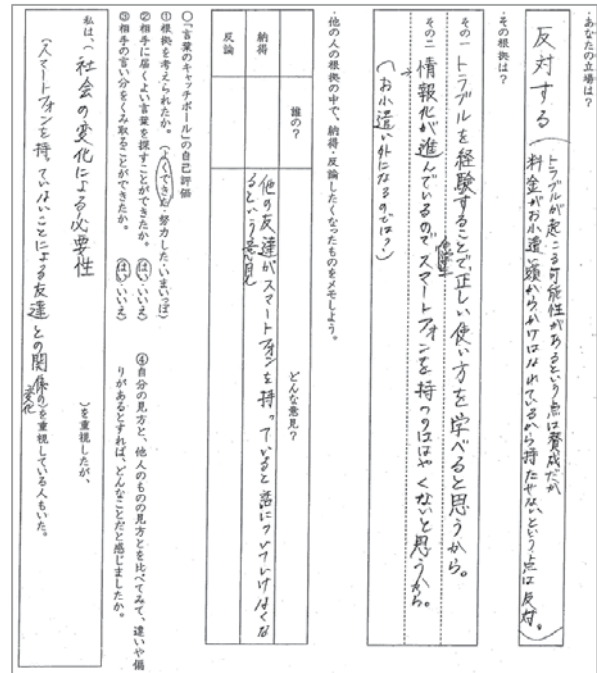 ・あなたの立場は？
反対する（トラブルが起こる可能性があるという点は賛成だが
料金がお小遣い額からかけはなれているから持たせないという点は反対。）
・その根拠は？
その一 トラブルを経験することで、正しい使い方を学べると思うから。
その二 情報化が進んでいるのでスマートフォンを持つのははやくないと思うから。
（お小遣い外になるのでは？）
・他の人の根拠の中で、納得・反論したくなったものをメモしよう。
誰の？
どんな意見？
納得
他の友達がスマートフォンを持っていると話についていけなくな
るという意見
反論
〇「言葉のキャッチボール」の自己評価
①根拠を考えられたか。（よくできた・努力した・いまいっぽ）
②相手に届くよい言葉を探すことができたか。（はい・いいえ）
③相手の言い分をくみ取ることができたか。（はい・いいえ）
④自分の見方と、他人のものの見方とを比べてみて、違いや偏
りがあるとすれば、どんなことだと感じましたか。
私は、（社会の変化による必要性）を重視したが、
（スマートフォンを持っていないことによる友達との関係の変化）を重視している人もいた。